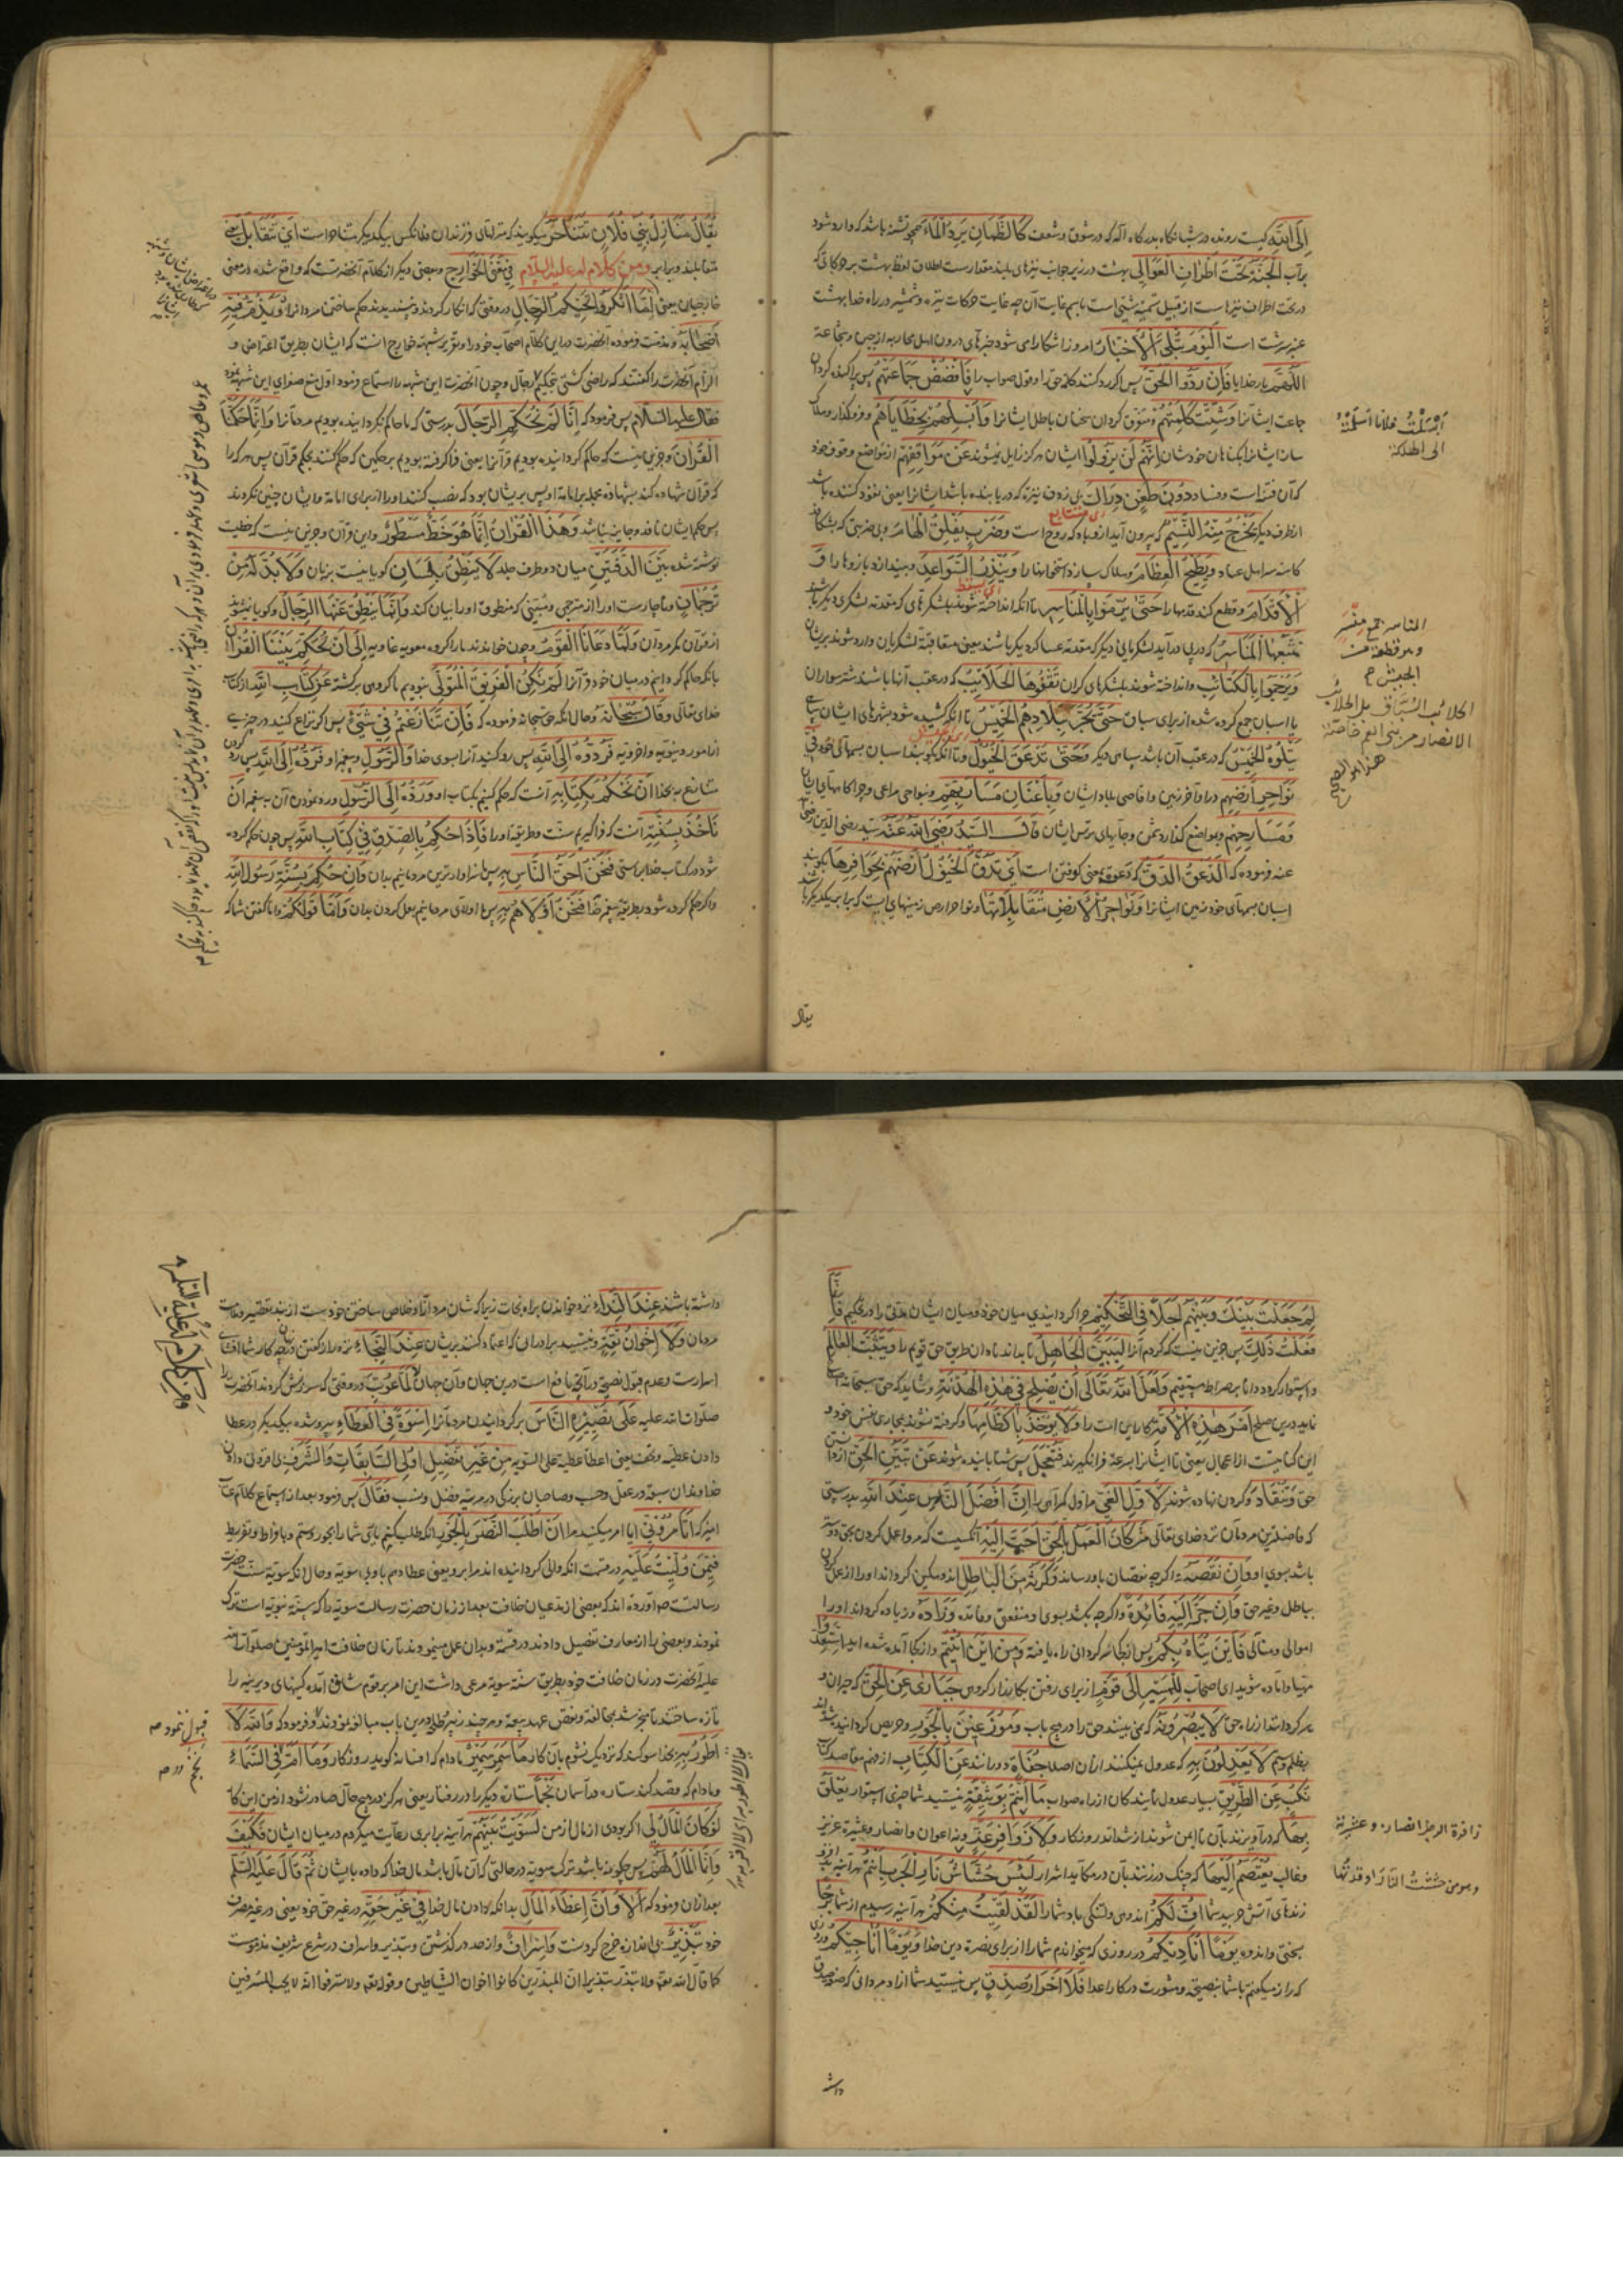 اِلَی اللّٰهِ کیست رونده در شبانگاه بدرگاه اله که در شوق و شعف کَالظَّمْاٰنِ یَرِدُ الْمٰاءَ همچو تشنه باشد که وارد شود
بر آب اَلْجَنَّةُ تَحْتَ اَطْرٰافِ الْعَوٰالِی بهشت در زیر جوانب نیزهای بلند مقدار است اطلاق لفظ بهشت بر حرکاتی که
در تحت اطراف نیزهاست از قبیل تسمیه شیئ است باسم غایت آن چه غایت حرکات نیزه و شمشیر در راه خدا بهشت
عنبر سرشت است اَلْیَوْمَ تُبْلَی الْاَخْبٰارُ امروز آشکارا می شود خبرهای درون اهل محاربه از جبن و شجاعة
اَللّٰهُمَّ بار خدایا فَاِنْ رَدُّوا الْحَقَّ پس اگر رد کنند کلمه حق را و قول صواب را فَافْضُضْ جَمٰاعَتَهُمْ پس پراکنده گردان
جماعت ایشانرا وَشَتِّتْ کَلِمَتَهُمْ و متفرق گردان سخنان باطل ایشانرا وَاَبْسِلْهُمْ بِخَطٰایٰاهُمْ و فروگذار و هلاک
ساز ایشانرا بگناهان خودشان اِنَّهُمْ لَنْ یَزُولُوا ایشان هرگز زایل نشوند عَنْ مَوٰاقِفِهِمْ از مواضع وقوف خود
که آن فتنه است و فساد دُونَ طَعْنٍ دِرٰاکٍ بی زدن نیزه که دریابنده باشد ایشانرا یعنی نفوذ کننده باشد
از طرف دیگر یَخْرُجُ مِنْهُ النَّسِیمُ که بیرون آید از و باد که روح است وَضَرْبٍ یَفْلِقُ الْهٰامَ و بی ضربتی که بشکافد
ای متتابع
کاسه سر اهل عناد وَیُطِیحُ الْعِظٰامَ و هلاک سازد استخوانها را وَیُنْدِرُ السَّوٰاعِدَ و بیندازد بازوها را وَ
ای یسقط
الْاَقْدٰامَ و قطع کند قدمها را حَتّٰی یُرْمَوا بِالْمَنٰاسِرِ تا آنکه انداخته شوند بلشکرهای که مقدمه لشکری دیگر باشد
تَتْبَعُهَا الْمَنٰاسِرُ که در پی درآید لشکریانی دیگر که مقدمة عساکر دیگر باشند یعنی متعاقبة لشکریان وارد شوند بریشان
وَیُرْجَمُوا بِالْکَتٰائِبِ و انداخته شوند بلشکرهای گران تَقْفُوهَا الْحَلَائِبُ که در عقب آنها باشند شتر سواران
یا اسبان جمع کرده شده از برای سباق حَتّٰی یُجَرَّ بِبِلَادِهِمُ الْخَمِیسُ تا آنکه کشیده شود بشهرهای ایشان سپاهی
یَتْلُوهُ الْخَمِیسُ که در عقب آن باشد سپاهی دیگر وَحَتّٰی تَدْعَقَ الْخُیُولُ و تا آنکه بکوبند اسبان بسمهای خود فِی
نَوٰاحِرِ اَرْضِهِمْ در اواخر زمین و اقاصی بلاد ایشان وَبِاَعْنٰانِ مَسٰارِبِهِمْ و بنواحی مراعی و چراگاههای ایشان
وَمَسٰارِحِهِمْ و مواضع گذاردنش و جایهای چریدن ایشان قٰالَ السَّیِّدُ رَضِیَ اللّٰهُ عَنْهُ سید رضی الدین رضی
عنه فرموده که اَلدَّعْقُ الدَّقُّ که دعق بمعنی کوفتن است اَیْ تَدُقُّ الْخُیُولُ اَرْضَهُمْ بِحَوٰافِرِهٰا بکوبند
اسبان بسمهای خود زمین ایشانرا وَنَوٰاحِرُ الْاَرْضِ مُتَقٰابِلَاتُهٰا و نواحر ارض زمینهای است که برابر یکدیگر باشد
یقال
اَبْسَلْتُ فلانا اسلمتُه
الی الهلکة
المناسر جمع منسر
و هو قطعة من
الجیش ح
الحلائب السباق بل الحلائب
الانصار من بنی العم خاصة
هذا هو الصحیح
یُقٰالُ مَنٰازِلُ بَنِی فُلَانٍ تَتَنٰاحَرُ میگویند که منزلهای فرزندان فلانکس بیکدیگر تناحر است اَیْ تَتَقٰابَلُ یعنی
متقابلند و برابر وَمِنْ کَلَامٍ لَهُ عَلَیْهِ السَّلَام فِی مَعْنَی الْخَوٰارِجِ و بعضی دیگر از کلام آنحضرتست که واقع شده در معنی
خارجیان یعنی لَمّٰا اَنْکَرُوا تَحْکِیمَ الرِّجٰالِ در وقتی که انکار کردند و نپسندیدند حکم ساختن مردانرا وَیَذُمُّ فِیهِ
اَصْحٰابَهُ و مذمت فرموده آنحضرت در این کلام اصحاب خود را و تقریر شبهه خوارج آنست که ایشان بطریق اعتراض و
الزام آنحضرت را گفتند که راضی گشتی بتحکیم رجال و چون آنحضرت این شبهه را استماع فرمود اول منع صغرای این شبهه نمود
فقال علیه السلام پس فرمود که اِنّٰا لَمْ نُحَکِّمِ الرِّجٰالَ بدرستی که ما حاکم نگردانیده بودیم مردمانرا وَاِنَّمٰا حَکَّمْنَا
الْقُرْاٰنَ و جزین نیست که حاکم گردانیده بودیم قرآنرا یعنی فراگرفته بودیم بر حکمین که حکم کنند بحکم قرآن پس هر که را
که قرآن شهاده کند بشهادة مجلد برامامة او پس بریشان بود که نصب کنند او را از برای امامة و ایشان چنین نکردند
پس حکم ایشان نافذ و جایز نباشد وَهٰذَا الْقُرْاٰنُ اِنَّمٰا هُوَ خَطٌّ مَسْطُورٌ و این قرآن و جزین نیست که خطیست
نوشته شده بَیْنَ الدَّفَّتَیْنِ میان دو طرف جلد لَا یَنْطِقُ بِلِسٰانٍ گویا نیست بزبان وَلَا بُدَّ لَهُ مِنْ
تَرْجُمٰانٍ و ناچارست او را از مترجمی و مبینی که منطوق او را بیان کند وَاِنَّمٰا یَنْطِقُ عَنْهُ الرِّجٰالُ و گویا نیشوند
از قرآن مگر مردان وَلَمّٰا دَعٰانَا الْقَوْمُ و چون خواندند ما را گروه معویه غاویه اِلٰی اَنْ نُحَکِّمَ بَیْنَنَا الْقُرْاٰنَ
بانکه حاکم گردانیم در میان خود قرآنرا لَمْ نَکُنِ الْفَرِیقَ الْمُتَوَلِّی نبودیم ما گروهی برگشته عَنْ کِتٰابِ اللّٰهِ از کتاب
خدای تعالی وَقٰالَ سُبْحٰانَهُ و حال آنکه حق سبحانه فرموده که فَاِنْ تَنٰازَعْتُمْ فِی شَیْءٍ پس اگر نزاع کنید در چیزی
از امور دینویه و اخرویه فَرُدُّوهُ اِلَی اللّٰهِ پس رد کنید آنرا بسوی خدا وَالرَّسُولِ و پیغمبر او فَرَدُّهُ اِلَی اللّٰهِ پس رد کردن
متنازع به بخدا اَنْ نَحْکُمَ بِکِتٰابِهِ آنست که حکم کنیم بکتاب او وَرَدُّهُ اِلَی الرَّسُولِ و رد نمودن آن به پیغمبر اَنْ
نَأْخُذَ بِسُنَّتِهِ آنست که فراگیریم سنت و طریقه او را فَاِذٰا حُکِمَ بِالصِّدْقِ فِی کِتٰابِ اللّٰهِ پس چون حکم کرده
شود در کتاب خدا براستی فَنَحْنُ اَحَقُّ النّٰاسِ بِهِ پس ما سزاوارترین مردمانیم بدان وَاِنْ حُکِمَ بِسُنَّةِ رَسُولِ اللّٰهِ
و اگر حکم کرده شود بطریقه پیغمبر خدا فَنَحْنُ اَوْلَاهُمْ بِهِ پس ما اولای مردمانیم بعمل کردن بدان وَاَمّٰا قَوْلُکُمْ و اما گفتن شما که
لِمَ جَعَلْتَ بَیْنَکَ وَبَیْنَهُمْ اَجَلًا فِی التَّحْکِیمِ چرا گردانیدی میان خود و میان ایشان مدتی را در تحکیم فَاِنَّمٰا
فَعَلْتُ ذٰلِکَ پس جزین نیست که کردم آنرا لِیَتَبَیَّنَ الْجٰاهِلُ تا بداند نادان طریق حق قویم را وَیَتَثَبَّتَ الْعٰالِمُ
و استوار گردد دانا بر صراط مستقیم وَلَعَلَّ اللّٰهَ تَعٰالٰی اَنْ یُصْلِحَ فِی هٰذِهِ الْهُدْنَةِ و شاید که حق سبحانه اصلاح
نماید درین صلح اَمْرَ هٰذِهِ الْاُمَّةِ کار این امت را وَلَا یُؤْخَذَ بِاَکْظٰامِهٰا و گرفته نشوند بمجاری نفس خود و
این کنایتست از اعجال یعنی تا ایشانرا بسرعة فرانگیرند فَتَعْجَلَ پس شتابانیده شوند عَنْ تَبَیُّنِ الْحَقِّ از دانستن
حق وَتَنْقٰادَ و گردن نهاده شوند لِاَوَّلِ الْغَیِّ مر اول گمراهی را اِنَّ اَفْضَلَ النّٰاسِ عِنْدَ اللّٰهِ بدرستی
که فاضلترین مردمان نزد خدای تعالی مَنْ کٰانَ الْعَمَلُ بِالْحَقِّ اَحَبَّ اِلَیْهِ آنکسیست که مر او را عمل کردن بحق دوستتر
باشد بسوی او وَاِنْ نَقَصَهُ و اگرچه نقصان باو رساند وَکَرَثَهُ مِنَ الْبٰاطِلِ و اندوهگین گرداند او را از عمل کردن
بباطل و غیر حق وَاِنْ جَرَّ اِلَیْهِ فٰائِدَةً و اگرچه بکشد بسوی او منفعتی و فائده وَزٰادَهُ و زیاده گرداند او را
اموالی و منالی فَاَیْنَ یُتٰاهُ بِکُمْ پس از کجا سرگردانی راه یافته وَمِنْ اَیْنَ اُتِیتُمْ و از کجا آمده شده اید اِسْتَعِدُّوا
مهیا و آماده شوید ای اصحاب لِلْمَسِیرِ اِلٰی قَوْمٍ از برای رفتن بکارزار گروهی حَیٰارٰی عَنِ الْحَقِّ که حیران و
سرگردانند از راه حق لَا یُبْصِرُونَهُ که نمی بینند حق را در هیچ باب وَمُوزَعِینَ بِالْجَوْرِ و حریص گردانیده شده اند
بظلم و ستم لَا یَعْدِلُونَ بِهِ که عدول نمیکنند از آن اصلا جُفٰاةٍ عَنِ الْکِتٰابِ دورانند از فهم مقاصد کتاب
نُکُبٍ عَنِ الطَّرِیقِ بسیار عدول نمایندگان از راه صواب مٰا اَنْتُمْ بِوَثِیقَةٍ نیستید شما چیزی استوار یُعْلَقُ
بِهٰا که درآویزند بآن تا ایمن شوند از شداید روزگار وَلَا زَوٰافِرِ عِزٍّ و نه اعوان و انصار و عشیره عزیز
و غالب یُعْتَصَمُ اِلَیْهٰا که چنگ در زنند بآن در مکاید اشرار لَبِئْسَ حُشّٰاشُ نٰارِ الْحَرْبِ اَنْتُمْ هر آینه بد افروزندهای
زندهای آتش حربید شما اُفٍّ لَکُمْ اندوه و دلتنگی باد شما را لَقَدْ لَقِیتُ مِنْکُمْ هر آینه رسیدم از شما بَرْحًا
بسختی و اندوه یَوْمًا اُنٰادِیکُمْ در روزی که میخواندم شما را از برای نصرة دین خدا وَیَوْمًا اُنٰاجِیکُمْ و در روزی
که راز میگفتم با شما بنصیحة و مشورت در کار اعدا فَلَا اَحْرٰارُ صِدْقٍ پس نیستید شما آزاد مردانی که صدق
داشته
زافرة الرجل انصاره و عشیرته
و هو من حششت النار ای اوقدتها
داشته باشند عِنْدَ النِّدٰاءِ نزد خواندن براه نجات زیرا که شان مردان آزاد خلاص ساختن خودست از بند تقصیر و معاونت
مردمان وَلَا اِخْوٰانُ ثِقَةٍ و نیستید برادرانی که اعتماد کنند بریشان عِنْدَ النَّجٰاءِ نزد راز گفتن زیرا که کار شما افشای
اسرارست و عدم قبول نصیحة لَمّٰا عُوتِبَ در وقتی که سرزنش کردند آنحضرت را
صلوات الله علیه عَلٰی تَصْیِیرِهِ النّٰاسَ بر گردانیدن مردمانرا اُسْوَةً فِی الْعَطٰاءِ پیرو شده بیکدیگر در عطا
دادن عطیه و تحف یعنی اعطاء عطیه علی السویه مِنْ غَیْرِ تَفْضِیلِ اُولِی السّٰابِقٰاتِ وَالشَّرَفِ بی افزونی دادن
خداوندان سبقة در عقل و حسب و صاحبان بزرگی در مرتبه فضل و نسب فَقٰالَ پس فرمود بعد از استماع کلام عتاب
امیز که اَتَأْمُرُونِّی ایا امر میکنید مرا اَنْ اَطْلُبَ النَّصْرَ بِالْجَوْرِ انکه طلب کنم یاری شما را بجور و ستم و بافراط و تفریط
فِیمَنْ وُلِّیتُ عَلَیْهِ در قسمت آنکه والی گردانیده اند مرا برو یعنی عطا دهم باو بی سویة و حال آنکه سویة سنت حضرت
رسالت صم اورده اند که بعضی از مدعیان خلافت بعد از زمان حضرت رسالت سویة را که سنة نبویه است ترک
نمودند و بعضی را از معارف تفضیل دادند در قسمة و بدان عمل مینمودند تا زمان خلافت امیر المؤمنین صلوات الله
علیه آنحضرت در زمان خلافت خود بطریق سنة سویة مرعی داشت این امر بر قوم شاق آمده کینهای دیرینه را
تازه ساختند تا منجر شد بمخالفة و نقض عهد بیعة و هر چند زبیر و طلحه درین باب مبالغه نمودند و فرمود که وَاللّٰهِ لَا
اَطُورُ بِهِ بخدا سوگند که نزدیک نشوم بآن کار مٰا سَمَرَ سَمِیرٌ مادام که افسانه گوید روزگار وَمٰا اَمَّ نَجْمٌ فِی السَّمٰاءِ
و مادام که قصد کند ستاره در آسمان نَجْمًا ستاره دیگر را در رفتار یعنی هرگز در هیچ حال صادر نشود از من این کار
لَوْ کٰانَ الْمٰالُ لِی اگر بودی از مال از من لَسَوَّیْتُ بَیْنَهُمْ هر آینه برابری رعایت میکردم در میان ایشان فَکَیْفَ
وَاِنَّمَا الْمٰالُ لَهُمْ پس چگونه باشد ترک سویة در حالتی که آن مال باشد مال خدا که داده بایشان ثُمَّ قٰالَ عَلَیْهِ السَّلَم
بعد از آن فرمود که اَلَا وَاِنَّ اِعْطٰاءَ الْمٰالِ بدانکه دادن مال خدا فِی غَیْرِ حَقِّهِ در غیر حق خود یعنی در غیر مصرف
خود تَبْذِیرٌ بی اندازه خرج کردنست وَاِسْرٰافٌ و از حد در گذشتن و تبذیر و اسراف در شرع شریف مذمومست
کما قال الله تعه ولا تبذر تبذیرا ان المبذرین کانوا اخوان الشیاطین و قوله تعه ولا تسرفوا انه لا یحب المسرفین
و من کلام له علیه السلم
قبول ننمود صم